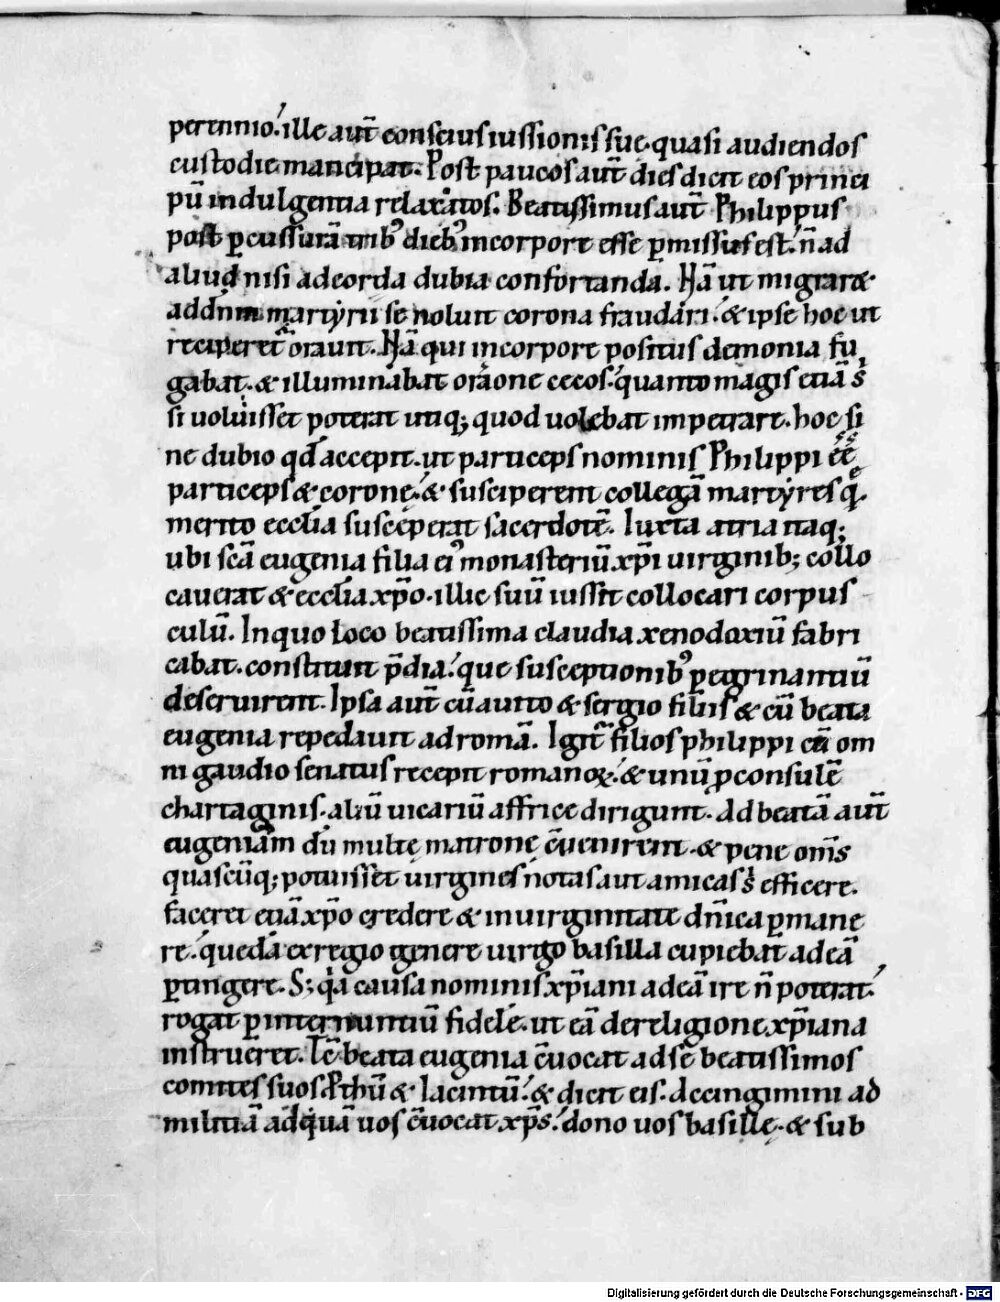 perennio. ille aut̄ conscius iussionis suę. quasi audiendos
custodie mancipat. Post paucos aut̄ dies dicit eos princi
pū indulgentia relaxatos. Beatissimus aut̄ Philippus
post ꝑcussurā trib' dieb' incorpore esse ꝑmissus est. n̄ ad
aliud nisi ad corda dubia confortanda. Nā ut migraret
ad dn̄m martyrii se noluit corona fraudari. & ipse hoc ut
reciperet orauit. Nā qui incorpore positus demonia fu
gabat. & illuminabat orāone cecos. quanto magis etiā s̄
si uoluisset poterat utiq; quod uolebat impetrare. hoc si
ne dubio qđ accepit. ut particeps nominis Philippi ēē
particeps & coronę. & susciperent collegā martyres q̄
merito ecclīa susceperat sacerdotē. Iuxta atria itaq;
ubi scā eugenia filia ei' monasteriū xp̄i uirginib; collo
cauerat & ecclīa xp̄o. illic suū iussit collocari corpus
culū. In quo loco beatissima claudia xenodoxiū fabri
cabat. constituit p̄dia. que susceptionib' ꝑegrinantiū
deseruirent. Ipsa aut̄ cū auito & sergio filiis & cū beata
eugenia repedauit ad romā. Igit̄ filios philippi cū om
ni gaudio senatus recepit romanoꝝ. & unū ꝓconsulē
chartaginis. aliū uicariū affrice dirigunt. Ad beatā aut̄
eugeniam dū multę matronę c̄uenirent. & pene om̄s
quascūq; potuisset uirgines notas aut amicas s̄ efficere.
faceret etiā xp̄o credere & in uirginitate dn̄ica ꝑmane
re. quedā ex regio genere uirgo basilla cupiebat ad eā
ꝑtingere. S; q̄a causa nominis xp̄iani ad eā ire n̄ poterat.
rogat ꝑ internuntiū fidelē. ut eā de religione xp̄iana
instrueret. Tc̄ beata eugenia c̄uocat ad se beatissimos
comites suos. Pthū & Iacintū. & dicit eis. Accingimini ad
militiā ad quā uos c̄uocat xp̄s. dono uos basillę. & sub
Digitalisierung gefördert durch die Deutsche Forschungsgemeinschaft - DFG